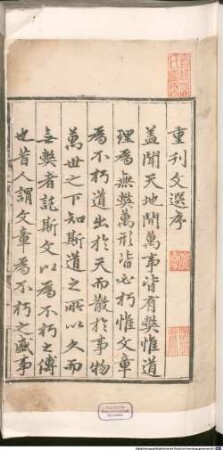 重刊文選序
蓋聞天地間萬事皆有獘惟道
理為無獘萬形皆必朽惟文章
為不朽道出於天而散於事物
萬世之下知斯道之所以久而
無獘者託斯文以為不朽之傳
也昔人謂文章為不朽之盛事